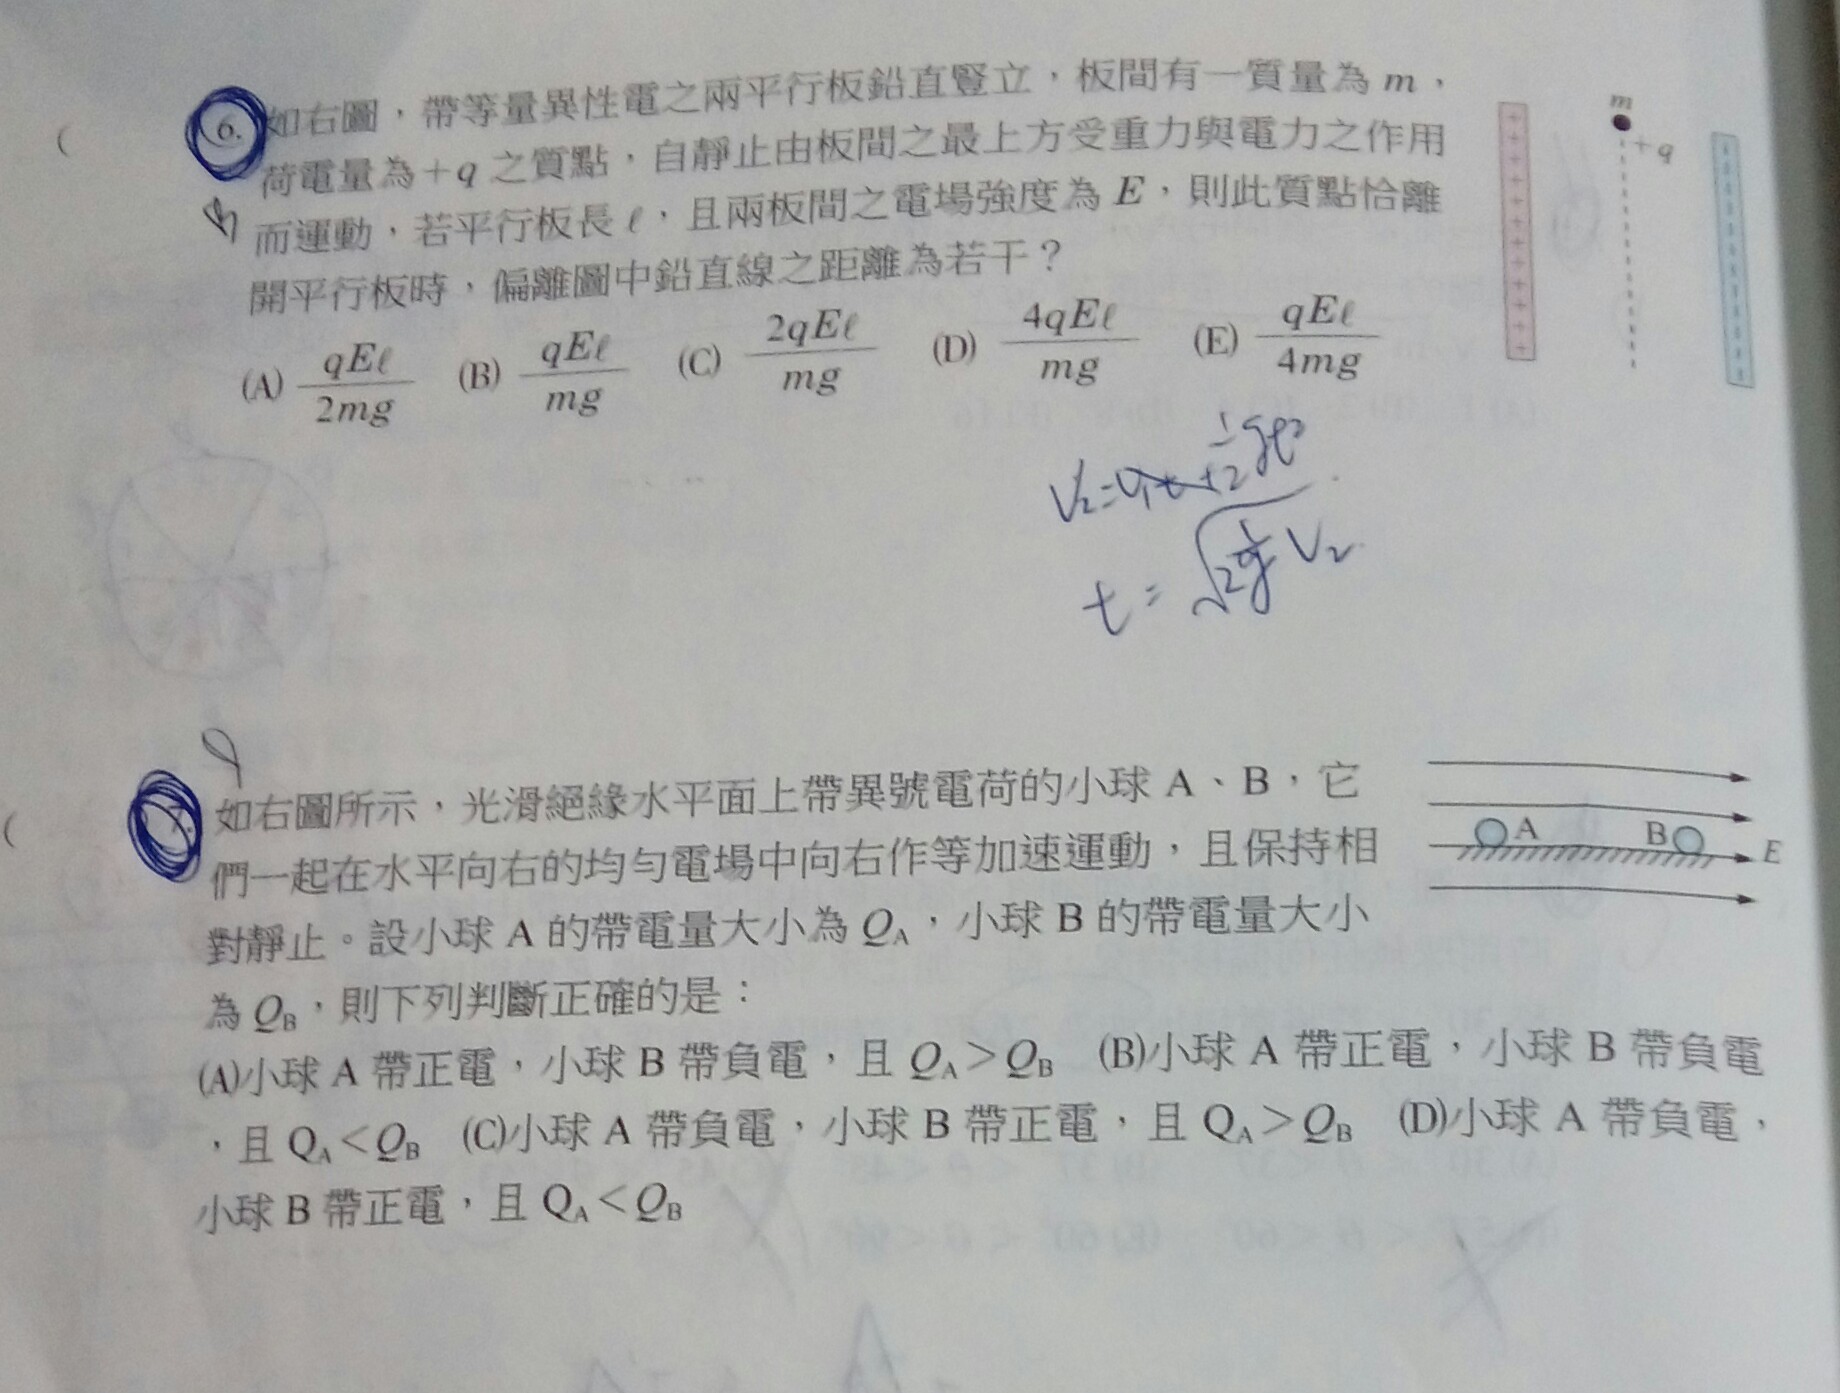 6. 如右圖，帶等量異性電之兩平行板鉛直豎立，板間有一質量為 m，
荷電量為+q 之質點，自靜止由板間之最上方受重力與電力之作用
而運動，若平行板長 ℓ，且兩板間之電場強度為 E，則此質點恰離
開平行板時，偏離圖中鉛直線之距離為若干？
(A) qEℓ/2mg (B) qEℓ/mg (C) 2qEℓ/mg (D) 4qEℓ/mg (E) qEℓ/4mg
m
+q
t =
7. 如右圖所示，光滑絕緣水平面上帶異號電荷的小球 A、B，它
們一起在水平向右的均勻電場中向右作等加速運動，且保持相
對靜止。設小球 A 的帶電量大小為 QA，小球 B 的帶電量大小
為 QB，則下列判斷正確的是：
(A)小球 A 帶正電，小球 B 帶負電，且 QA＞QB (B)小球 A 帶正電，小球 B 帶負電
，且 QA＜QB (C)小球 A 帶負電，小球 B 帶正電，且 QA＞QB (D)小球 A 帶負電，
小球 B 帶正電，且 QA＜QB
A B E